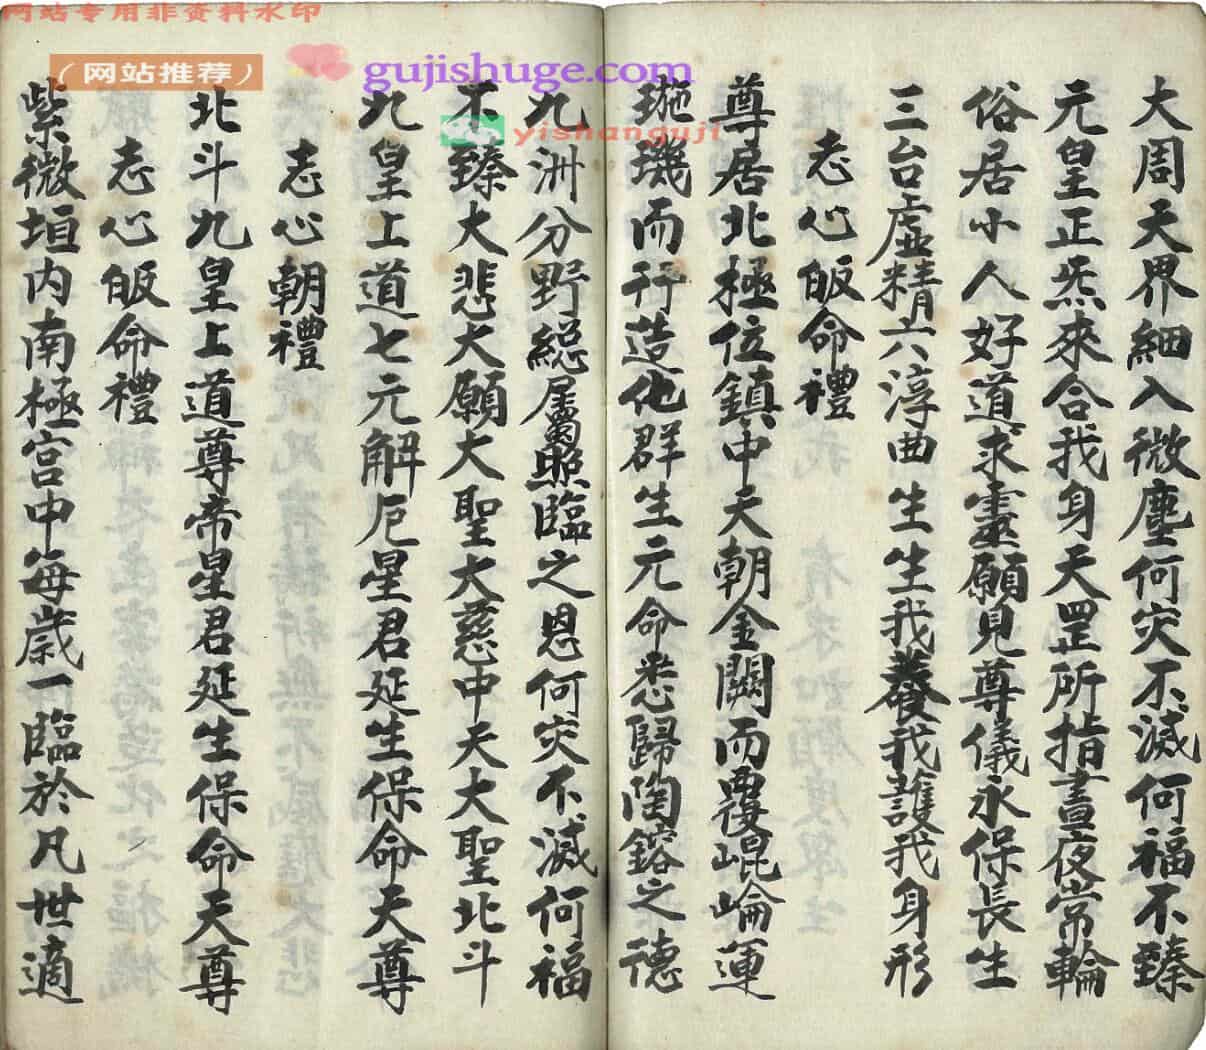 网站专用非资料水印
（网站推荐）
gujishuge.com
yishanguji
大周天界細入微塵何灾不滅何福不臻
元皇正炁來合我身天罡所指晝夜常輪
俗居小人好道求靈願見尊儀永保長生
三台虛精六淳曲生生我養我護我身形
志心皈命禮
尊居北極位鎮中天朝金闕而覆崐崘運
璇璣而行造化群生元命悉歸陶鎔之德
九洲分野総屬照臨之恩何灾不滅何福
不臻大悲大願大聖大慈中天大聖北斗
九皇上道七元解厄星君延生保命天尊
志心朝禮
北斗九皇上道尊帝星君延生保命天尊
志心皈命禮
紫微垣内南極宮中每歲一臨於凡世適